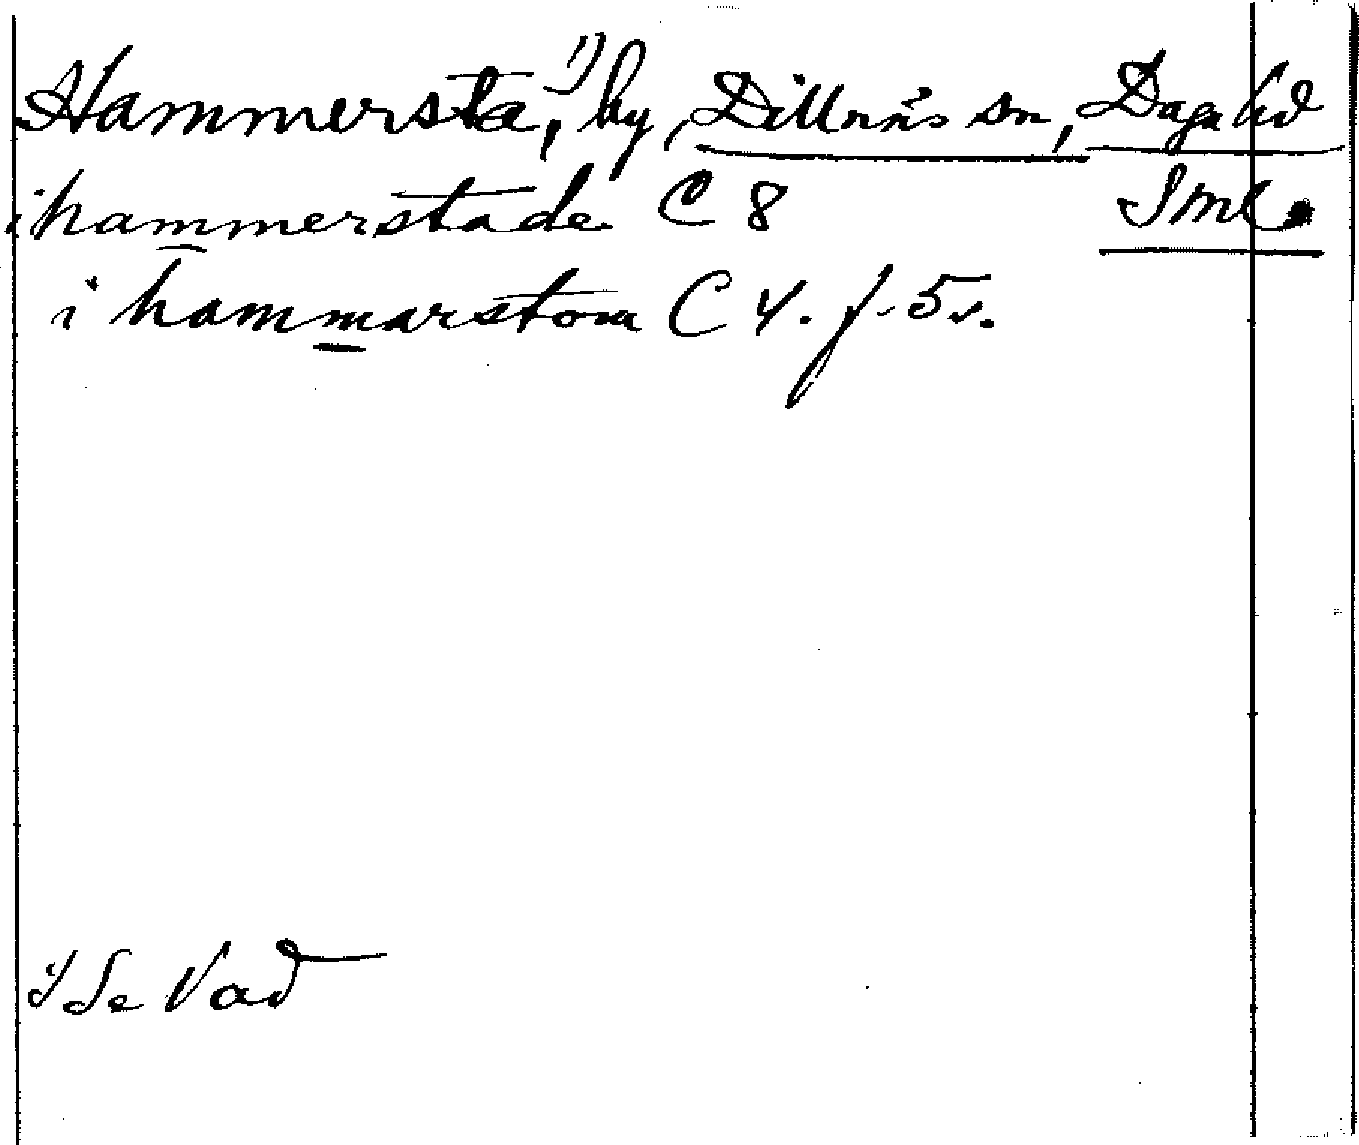 Hammersta,¹⁾ by, Dillnäs sn, Daga hd
i hammerstade C 8 Sml.
i hammarstom C 4. f. 5 v.
1) Se Vad